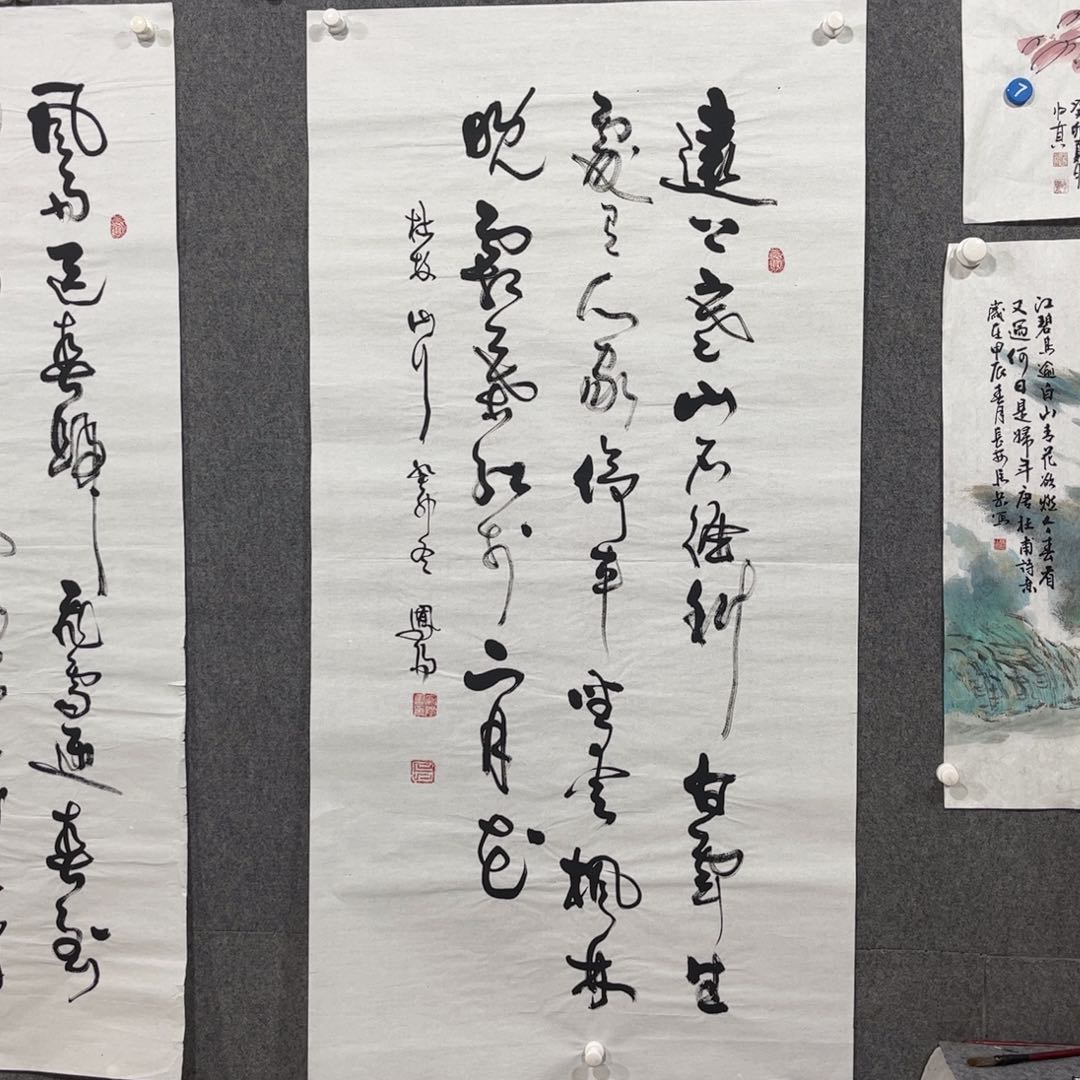 江碧鳥逾白山青花欲燃今春看
又過何日是歸年唐杜甫詩意
歲在甲辰春月長安
遠上寒山石徑斜白雲生
處有人家停車坐愛楓林
晚霜葉紅於二月花
杜牧 山行 癸卯冬
風雨送春歸飛雪迎春到
7